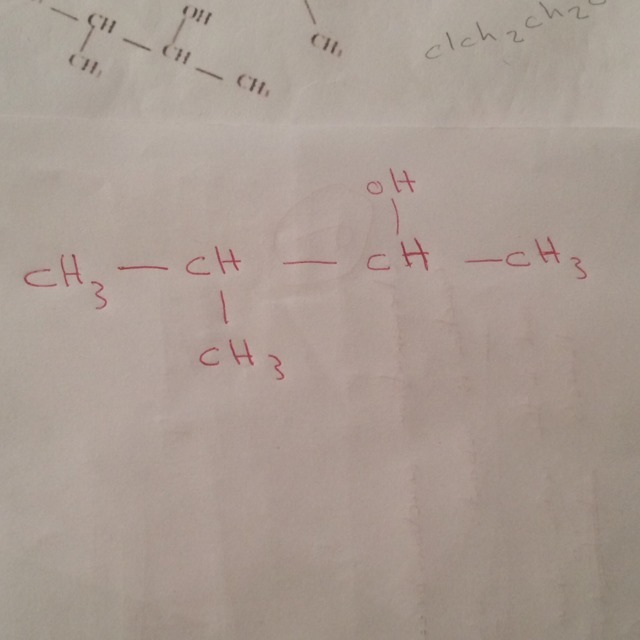 CH OH
CH₃ CH CH₃ CH₃ clch₂ch₂
OH
CH₃ — CH — CH — CH₃
CH₃